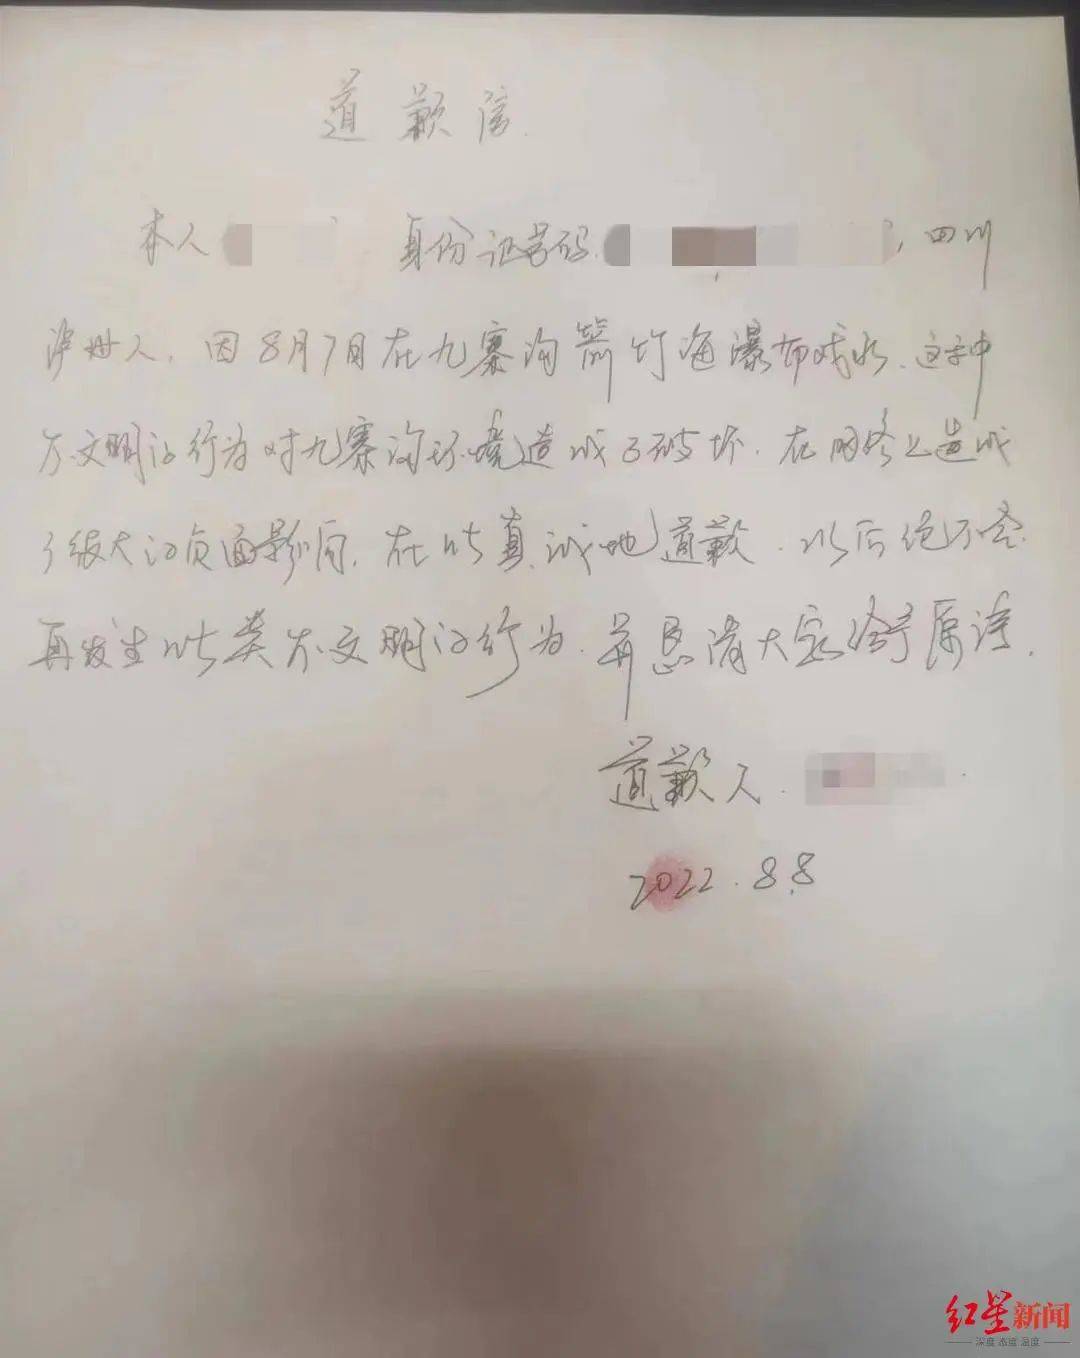 道歉信.
本人 身份证号码 , 四川
泸州人, 因8月7日在九寨沟箭竹海瀑布戏水, 这种
不文明的行为对九寨沟环境造成了破坏. 在网络上造成
了极大的负面影响, 在此真诚地道歉. 以后绝不会
再发生此类不文明的行为. 并恳请大家给予原谅.
道歉人.
2022.8.8
红星新闻
深度 态度 温度